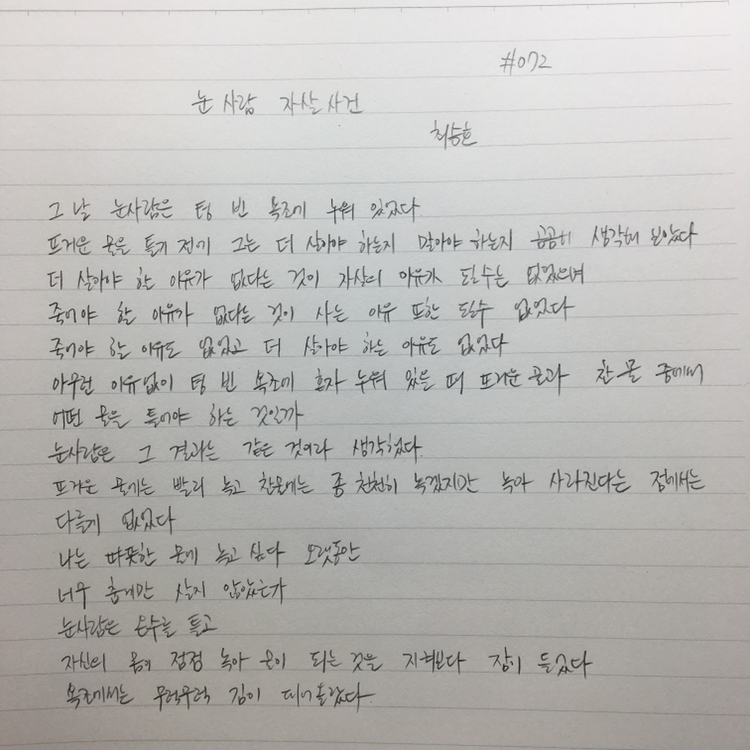 #072
눈사람 자살사건
최승호
그 날 눈사람은 텅 빈 욕조에 누워 있었다
뜨거운 물을 틀기 전에 그는 더 살아야 하는지 말아야 하는지 곰곰히 생각해 보았다
더 살아야 할 이유가 없다는 것이 자살의 이유가 될수는 없었으며
죽어야 할 이유가 없다는 것이 사는 이유 또한 될수 없었다
죽어야 할 이유도 없었고 더 살아야 하는 이유도 없었다
아무런 이유없이 텅 빈 욕조에 혼자 누워 있을 때 뜨거운 물과 찬 물 중에서
어떤 물을 틀어야 하는 것일까
눈사람은 그 결과는 같은 것이라 생각했다
뜨거운 물에는 빨리 녹고 찬물에는 좀 천천히 녹겠지만 녹아 사라진다는 점에서는
다를게 없었다
나는 따뜻한 물에 녹고 싶다 오랫동안
너무 춥게만 살지 않았는가
눈사람은 온수를 틀고
자신의 몸이 점점 녹아 물이 되는 것을 지켜보다 잠이 들었다
욕조에서는 무럭무럭 김이 피어올랐다